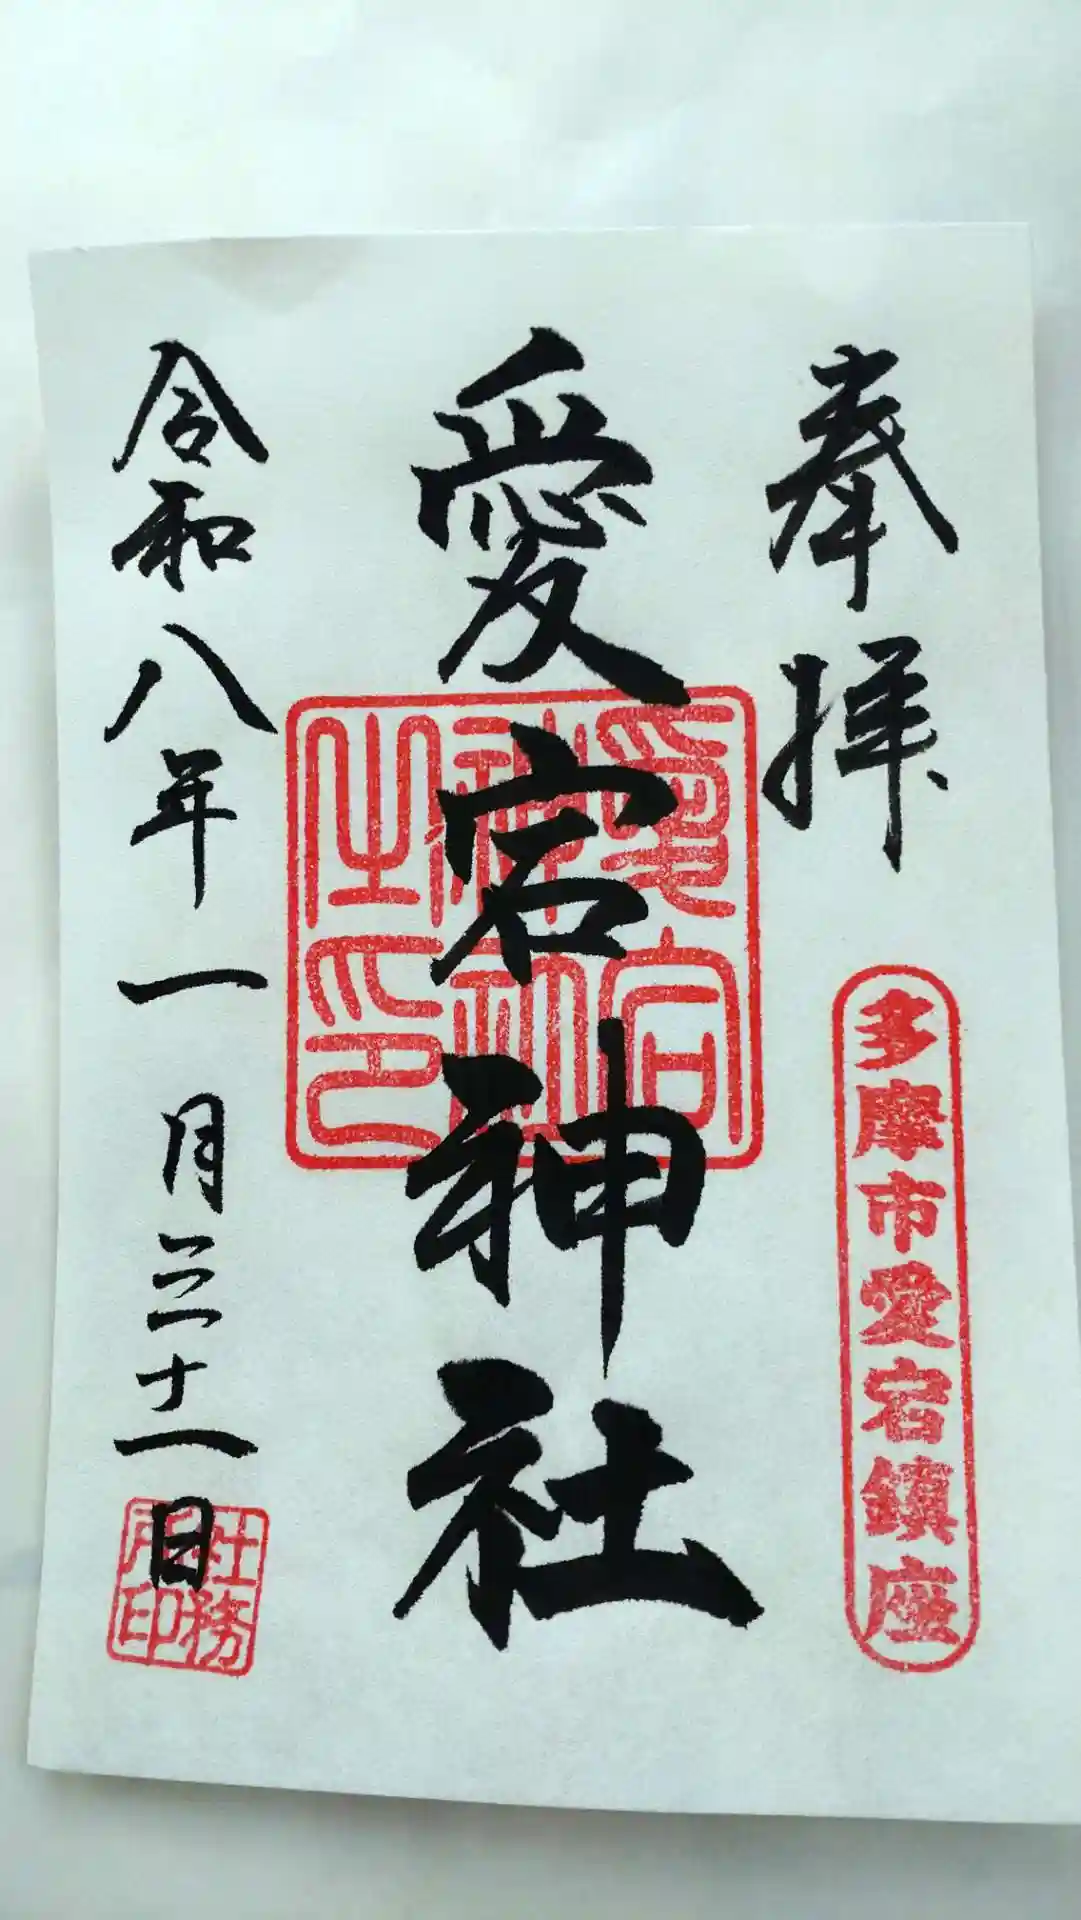 奉拝
多摩市愛宕鎮座
愛宕神社
愛宕
神社
之印
令和八年一月三十一日
社務
所印